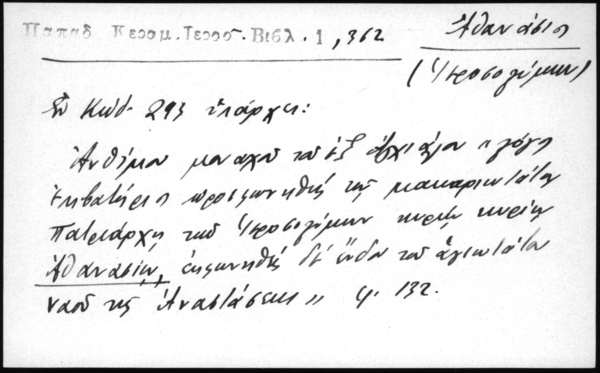 Παπαδ. Κεραμ. Ιεροσ. Βιβλ. 1, 362
Ἀθανάσιος
(Ἱεροσολύμων)
Ἐν Κώδ. 293 ὑπάρχει:
Ἀνθίμου μοναχοῦ τοῦ ἐξ Ἀγχιάλου "λόγος
ἐμβατήριος προσφωνηθεὶς τῷ μακαριωτάτῳ
Πατριάρχῃ τῶν Ἱεροσολύμων κυρίῳ κυρίῳ
Ἀθανασίῳ, ἐκφωνηθεὶς δὲ ἔνδον τοῦ ἁγιωτάτου
ναοῦ τῆς Ἀναστάσεως" φ. 132.